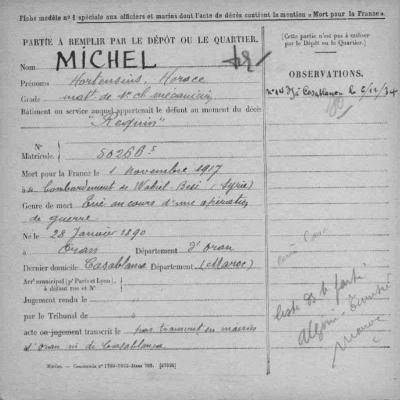 Fiche modèle nº 1 spéciale aux officiers et marins dont l'acte de décès contient la mention « Mort pour la France ».
PARTIE A REMPLIR PAR LE DÉPÔT OU LE QUARTIER.
Nom MICHEL
Prénoms Hortensius, Horace
Grade mat. de 1re cl mécanicien
Bâtiment ou service auquel appartenait le défunt au moment du décès
"Requin"
Nº
Matricule. 50266
Mort pour la France le 1 novembre 1917
à Bombardement de Wadi-Hesi (Syrie)
Genre de mort Tué au cours d'une opération
de guerre
Né le 28 Janvier 1890
à Oran Département d'Oran
Dernier domicile Casablanca Département (Maroc)
Arrt municipal (pr Paris et Lyon)
à défaut rue et Nº
Jugement rendu le
Par le Tribunal de
acte ou jugement transcrit le pas transcrit en mairies
d'Oran ni de Casablanca
(Cette partie n'est pas à utiliser
par le Dépôt ou le Quartier.)
OBSERVATIONS.
Casablanca le
liste de
Algérie - Tunisie
Maroc